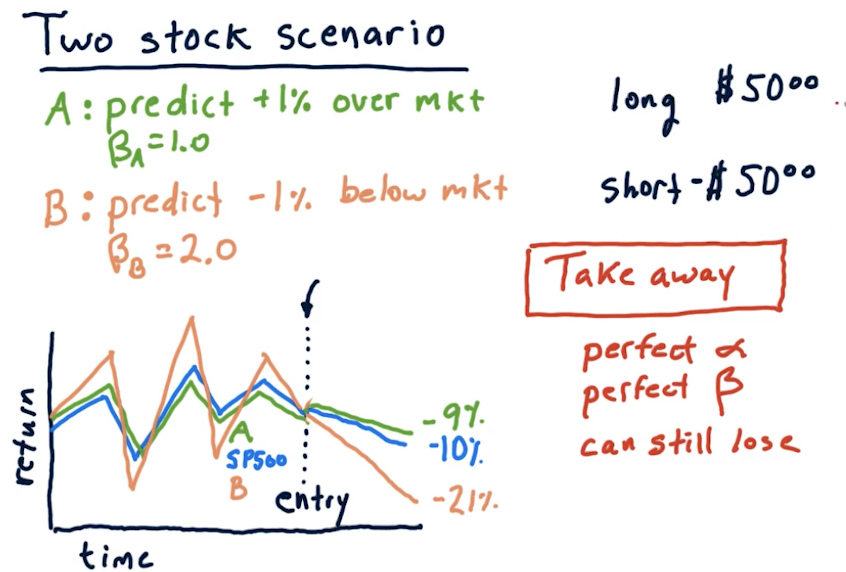 Two stock scenario
A: predict +1% over mkt
βA=1.0
B: predict -1% below mkt
βB=2.0
long $50⁰⁰
short -$50⁰⁰
Take away
perfect α
perfect β
can still lose
return
A
SP500
B
entry
-9%
-10%
-21%
time